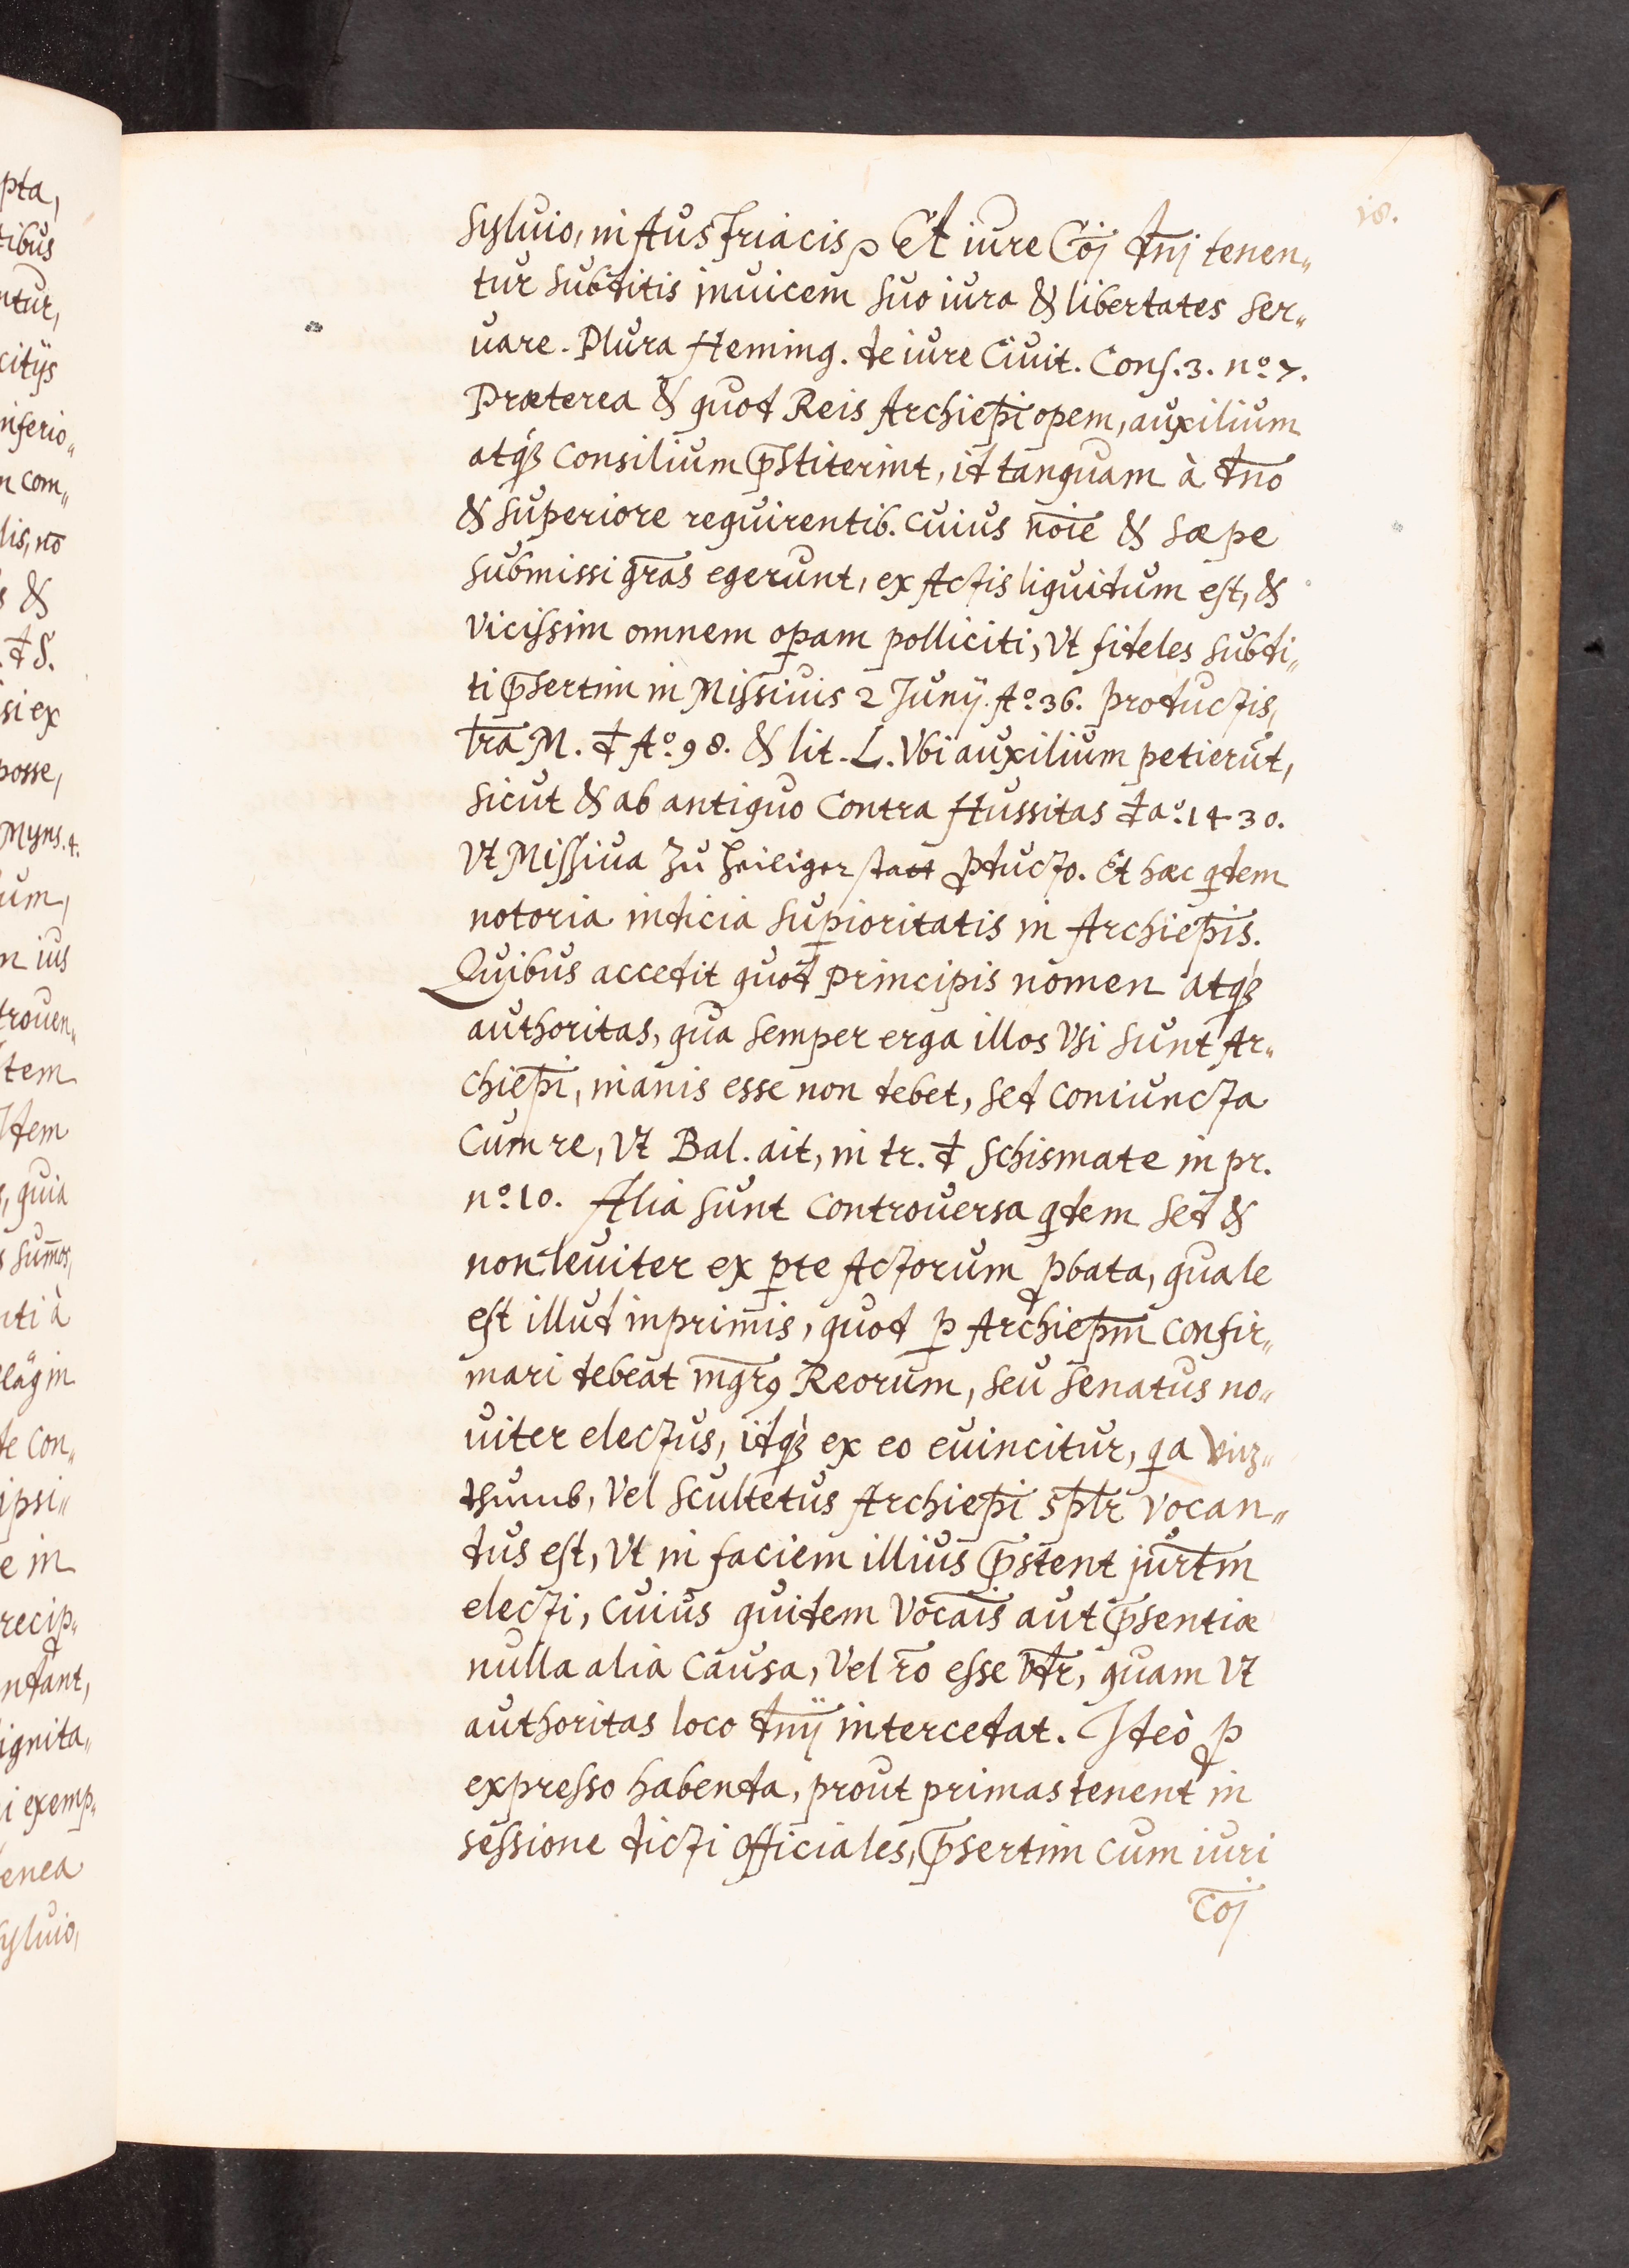 pta,
tibus
ntur,
citijs
inferio„
n com„
lis, nō
s &
. đ S.
si ex
posse,
Myns. 4.
um,
n ius
trouen„
tem
Idem
s, quia
s Sum̄os,
nti à
läg in
de Con„
ipsi„
e in
recip„
ndant,
ignita„
i exemp„
enea
Syluio,
18.
Syluio, in Austriacis ꝛ Et iure Cōj dn̄j tenen„
tur Subditis inuicem Suo iura & libertates Ser„
uare. Plura Heming. de iure Ciuit. Cons. 3. nº 7.
Præterea & quod Reis Archiep̄i opem, auxilium
atqꝫ Consilium p̄stiterint, id tanquam à dn̄o
& Superiore requirentib. Cuius no͞ie & Sæpe
Submissi gr̄as egerunt, ex Actis liquidum est, &
vicissim omnem oꝑam polliciti, Vt fideles Subdi„
ti p̄sertim in Missiuis 2 Junij. Aº. 36. productis,
lr̄a M. đ Aº. 98. & lit. L. Vbi auxilium petierūt,
Sicut & ab antiquo Contra Hussitas đ aº. 1430.
Vt Missiua Zu Heiliger statt ꝓducto. Et hæc qdem
notoria indicia Suꝑioritatis in Archiep̄is.
Quibus accedit quod principis nomen atqꝫ
authoritas, qua Semper erga illos Vsi Sunt Ar„
chiep̄i, inanis esse non debet, Sed Coniuncta
Cum re, Vt Bal. ait, in tr. đ Schismate in pr.
nº. 10. Alia Sunt Controuersa qdem Sed &
non leuiter ex ꝑte Actorum ꝓbata, quale
est illud inprimis, quod ꝑ Archiep̄m Confir„
mari debeat mgr̄9 Reorum, Seu Senatus no„
uiter electus, idqꝫ ex eo euincitur, qa Viz„
thumb, Vel Scultetus Archiep̄i sp̄lr Vocan„
dus est, Vt in faciem illius p̄stent jur̄tm
electi, Cuius quidem Vocāis aut p̄sentiæ
nulla alia Causa, Vel r̄o esse v̄dr, quam Vt
authoritas loco dn̄ij intercedat. Ideò ꝓ
expresso habenda, prout primas tenent in
sessione dicti officiales, p̄sertim Cum iuri
Cōj